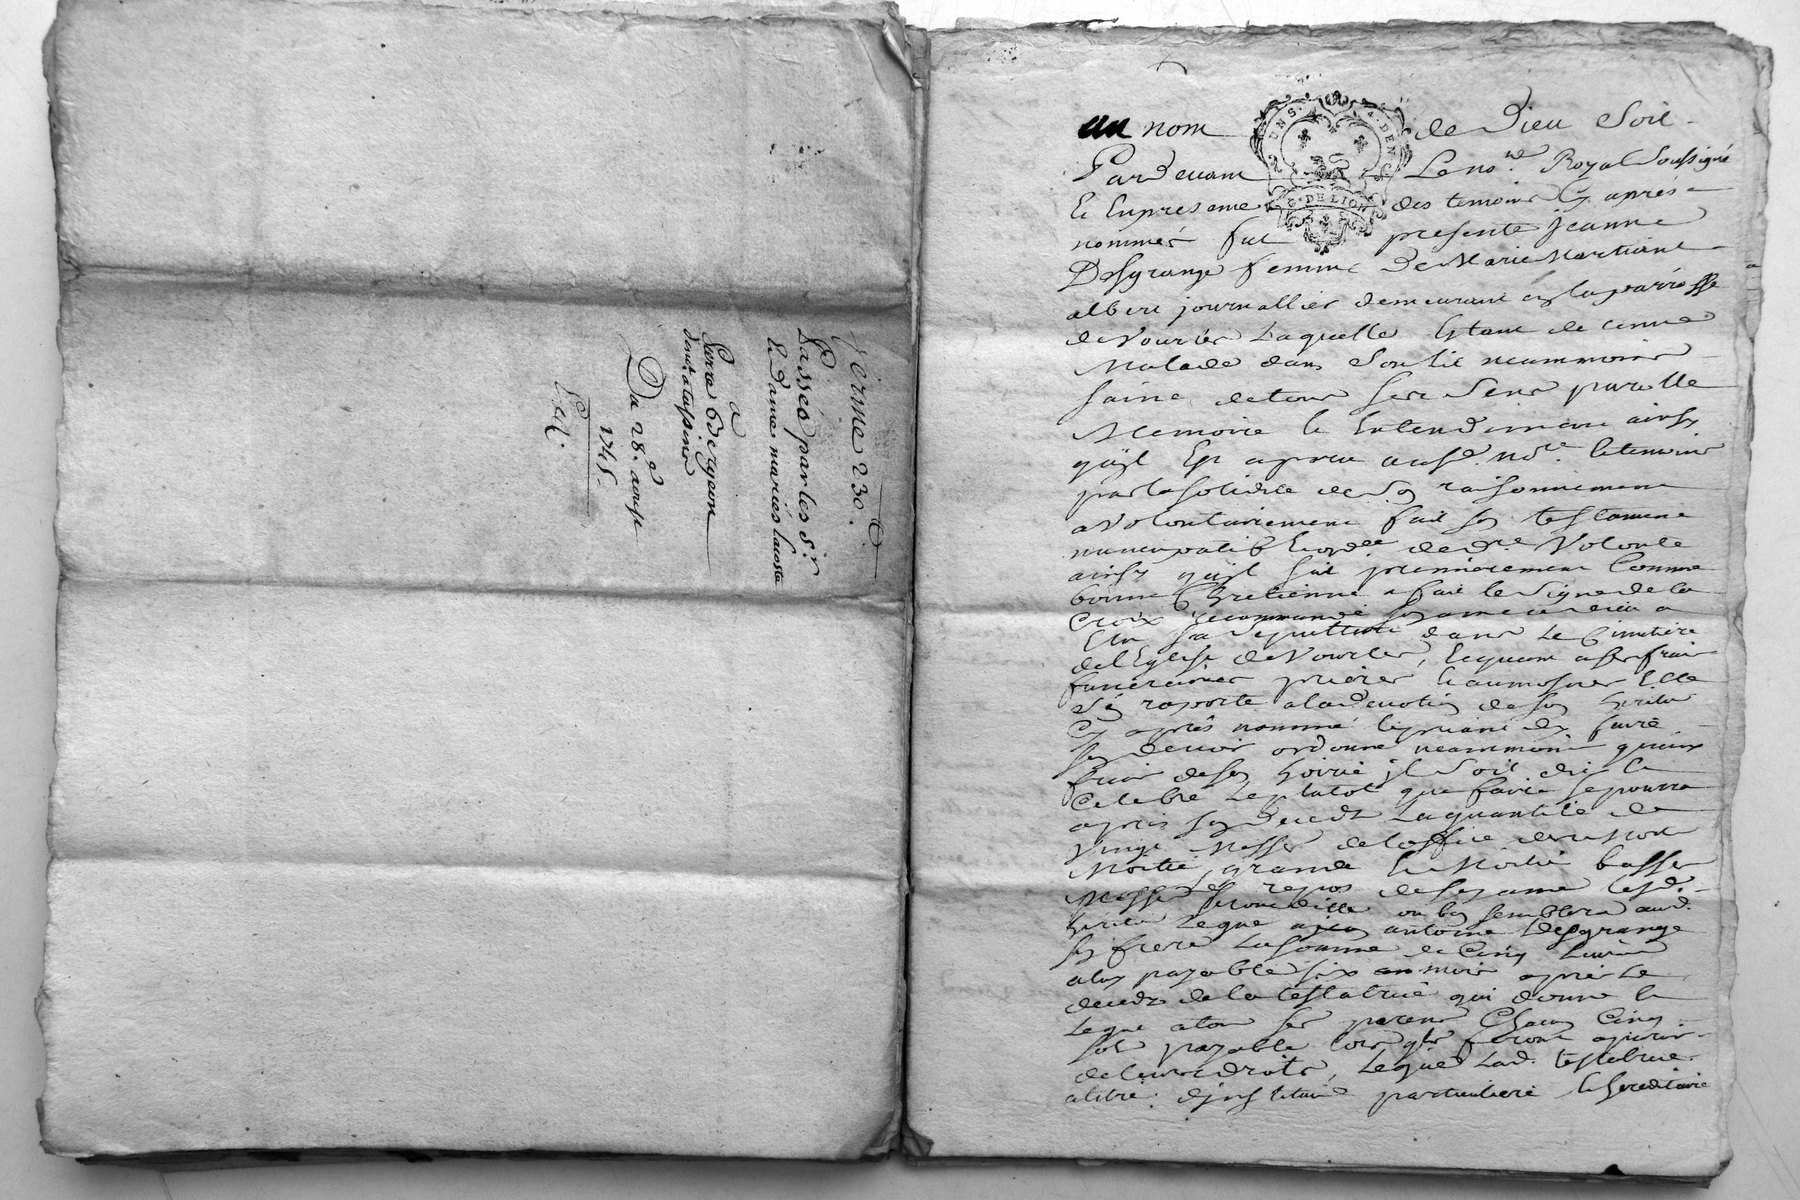 ferme 230.
Passés par les Sr.
Et Dame mariés Lacoste
a
Pierre Bergeron
Du 28e. aoust
1748.
Exd.
au nom de Dieu Soit
DEUX SOLS 4 DEN
G. DE LION
Pardevant Le nore. Royal Soussigné
Et Enpresence des temoins Cy après
nommés fut presente Jeanne
Desgrange femme De Marie Martiane
alberi journallier demeurant en la parroisse
de Vourles Laquelle Estant detenue
Malade dans Son lit neammoins
Saine de tous Ses Sens parolle
Memoire et Entendement ainsy
qu'il Est aparu ausd. nore. et temoins
par la solidité de Son raisonnement
a Volontairement fait Son testament
nuncupatif Et ordce. de dre. Volonté
ainsy qu'il Suit premierement Comme
bonne Chretienne a fait le Signe de la
Croix recommandé Son ame a Dieu a
Elu Sa Sepulture dans Le Cimetière
de l'Eglise de Vourles, Et quant a Ses frais
funeraires prières Et aumosnes Elle
S'en raporte a la devotion de Son heritier
Cy après nommé Le priant d'en faire
Son devoir ordonne neammoins qu'aux
frais de Son hoirie il Soit dit Et
Celebré Le plutot que faire Se pourra
après Son Deceds La quantité de
Vingt Messes de L'office des Morts
Moitié grande Et Moitié basses
Messes repos de Son ame Lesd.
ou bon Semblera aud.
heritier Legue a antoine Desgrange
Son frere La Somme de Cinq Livres
a luy payable Six mois après Le
deceds de la testatrice qui donne Et
Legue a tous Ses parens Chacun Cinq
Sols payable lors qu'ils feront aparoir
de leurs droits, Legue Lad. testatrice
a titre d'institution particuliere Et hereditaire